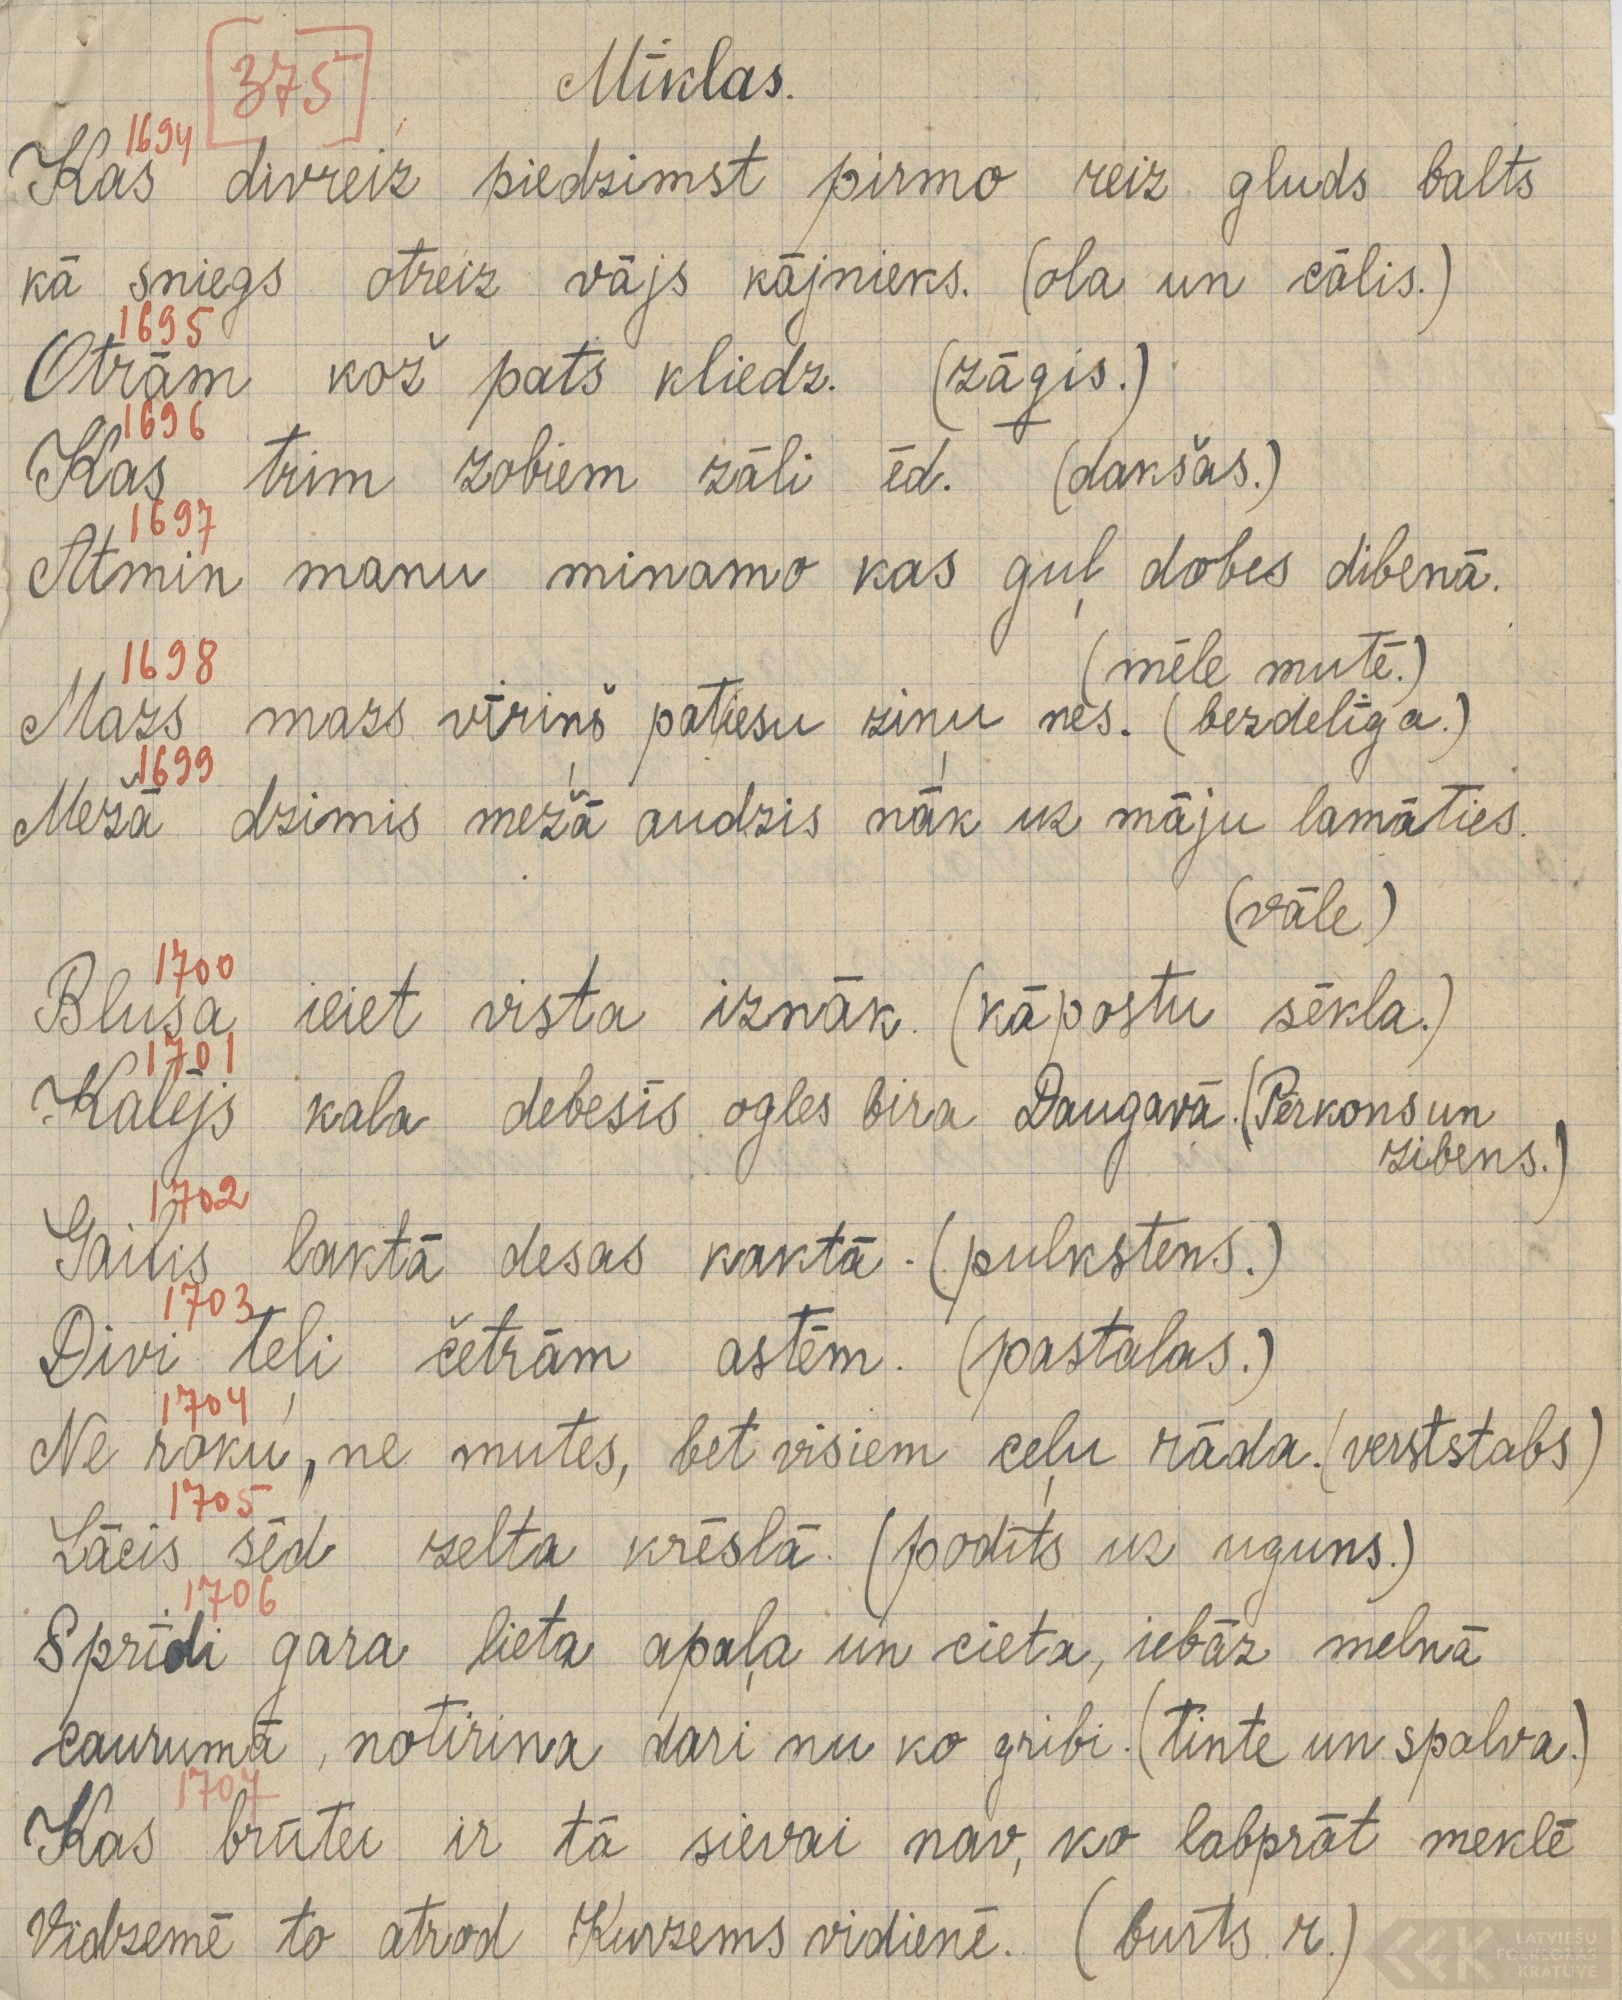 375
Mīklas.
1694
Kas divreiz piedzimst pirmo reiz gluds balts
kā sniegs otreiz vājs kājnieks. (ola un cālis.)
1695
Otrām kož pats kliedz. (zāģis.)
1696
Kas trim zobiem zāli ēd. (dakšas.)
1697
Atmin manu minamo kas guļ dobes dibenā.
(mēle mutē.)
1698
Mazs mazs vīriņš patiesu ziņu nes. (bezdelīga.)
1699
Mežā dzimis mežā audzis nāk uz māju lamāties.
(vāle)
1700
Blusa ieiet vista iznāk. (kāpostu sēkla.)
1701
Kalējs kala debesīs ogles bira Daugavā. (Pērkons un
zibens.)
1702
Gailis laktā desas kaktā. (pulkstens.)
1703
Divi teļi četrām astēm. (pastalas.)
1704
Ne roku, ne mutes, bet visiem ceļu rāda. (verststabs)
1705
Lācis sēd zelta krēslā. (podīts uz uguns.)
1706
Sprīdi gara lieta apaļa un cieta, iebāz melnā
caurumā, notīrina dari nu ko gribi. (tinte un spalva.)
1707
Kas brūtei ir tā sievai nav, ko labprāt meklē
Vidzemē to atrod Kurzems vidienē. (burts r.)
LATVIEŠU
FOLKLORAS
KRĀTUVE